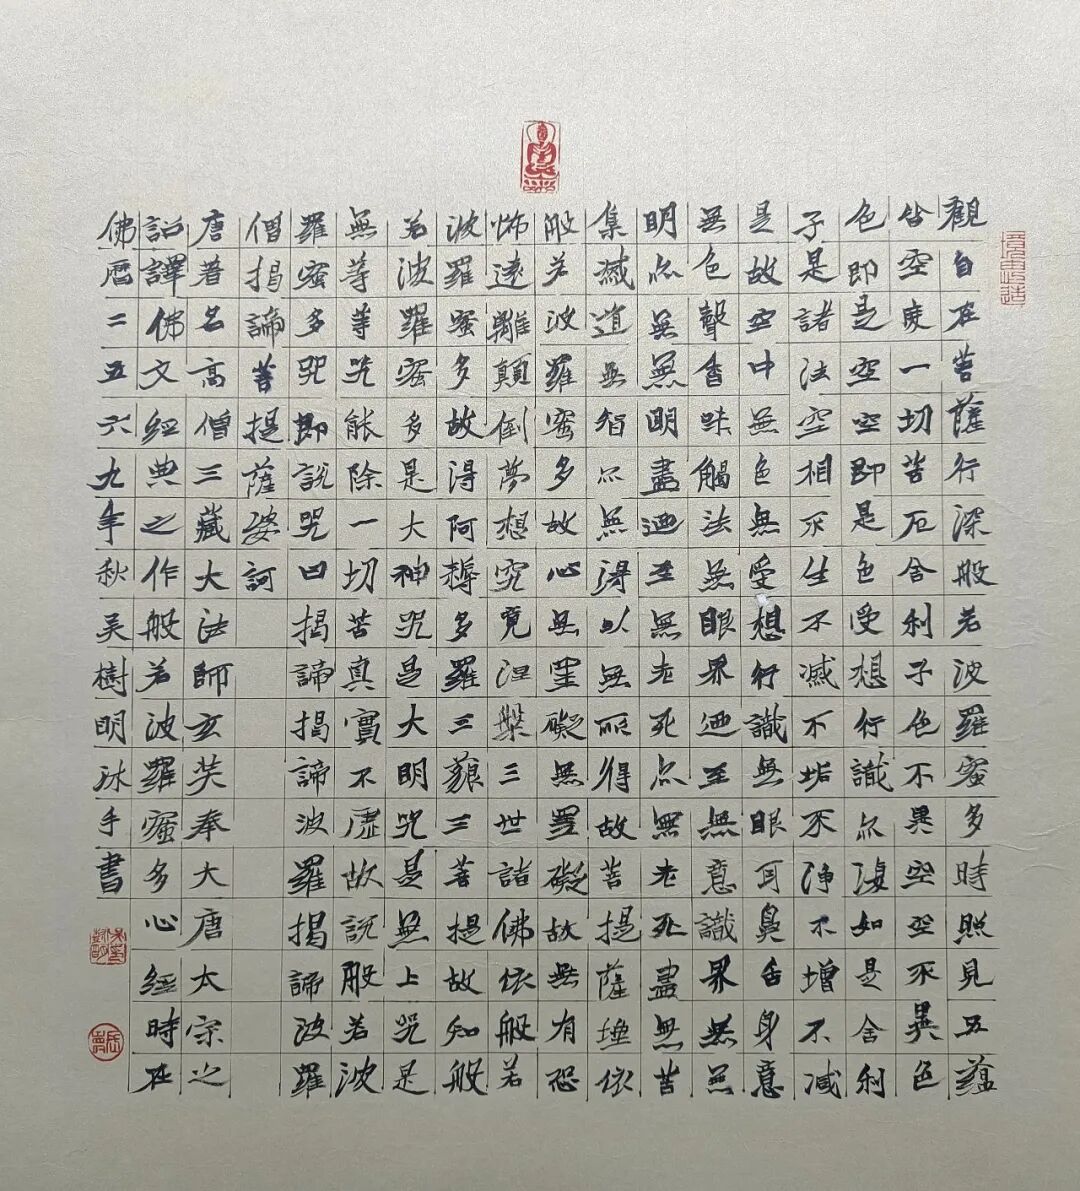 觀自在菩薩行深般若波羅蜜多時照見五蘊
皆空度一切苦厄舍利子色不異空空不異色
色即是空空即是色受想行識亦復如是舍利
子是諸法空相不生不滅不垢不淨不增不減
是故空中無色無受想行識無眼耳鼻舌身意
無色聲香味觸法無眼界迺至無意識界無無
明亦無無明盡迺至無老死亦無老死盡無苦
集滅道無智亦無得以無所得故菩提薩埵依
般若波羅蜜多故心無罣礙無罣礙故無有恐
怖遠離顛倒夢想究竟涅槃三世諸佛依般若
波羅蜜多故得阿耨多羅三藐三菩提故知般
若波羅蜜多是大神咒是大明咒是無上咒是
無等等咒能除一切苦真實不虛故說般若波
羅蜜多咒即說咒曰揭諦揭諦波羅揭諦波羅
僧揭諦菩提薩婆訶
唐著名高僧三藏大法師玄奘奉大唐太宗之
詔譯佛文經典之作般若波羅蜜多心經時在
佛曆二五六九年秋吳樹明沐手書